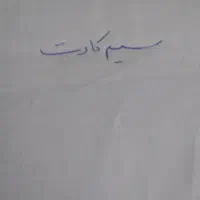 سیم کارت